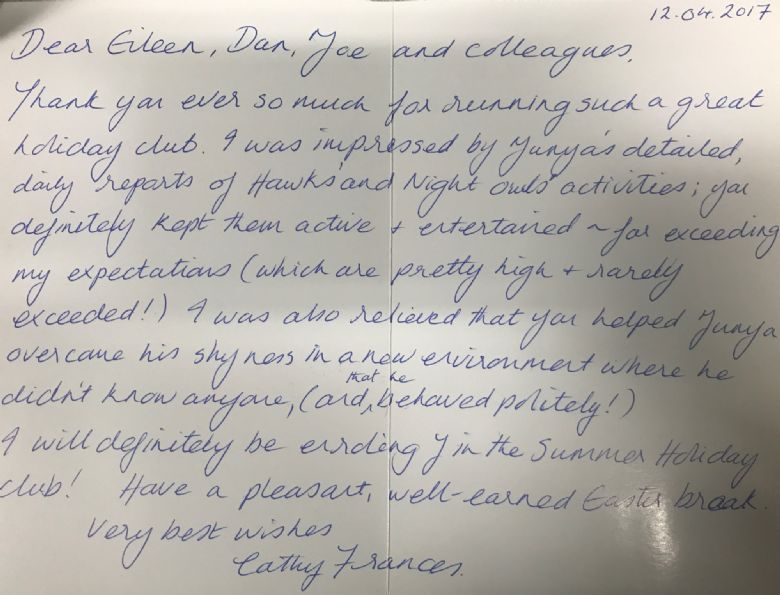 12.04.2017
Dear Eileen, Dan, Joe and colleagues,
Thank you ever so much for running such a great
holiday club. I was impressed by Junya's detailed,
daily reports of Hawks' and Night Owls' activities; you
definitely kept them active + entertained ~ far exceeding
my expectations (which are pretty high + rarely
exceeded!) I was also relieved that you helped Junya
overcome his shyness in a new environment where he
that he
didn't know anyone, (and, behaved politely!)
I will definitely be enroling J in the Summer Holiday
club! Have a pleasant, well-earned Easter break.
Very best wishes
Cathy Frances.